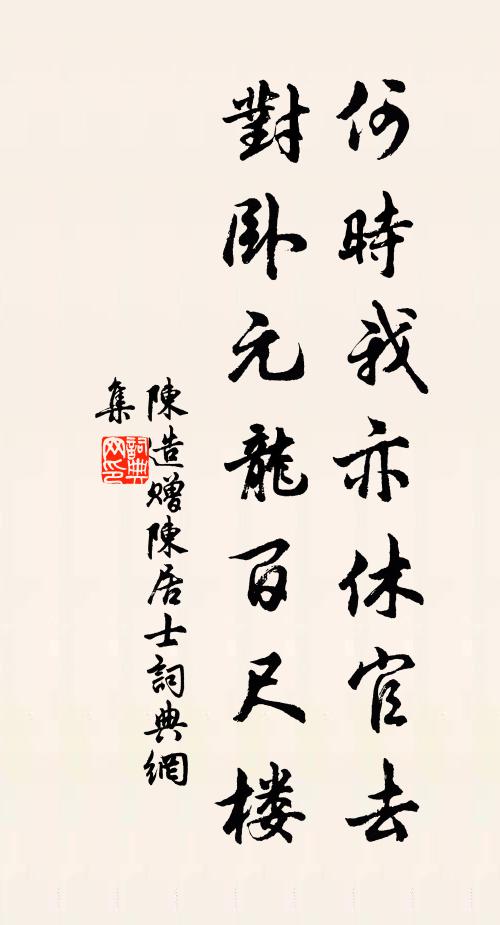 何時我亦休官去
對卧元龍百尺楼
陳造赠陳居士詞典網
集
詞典网印